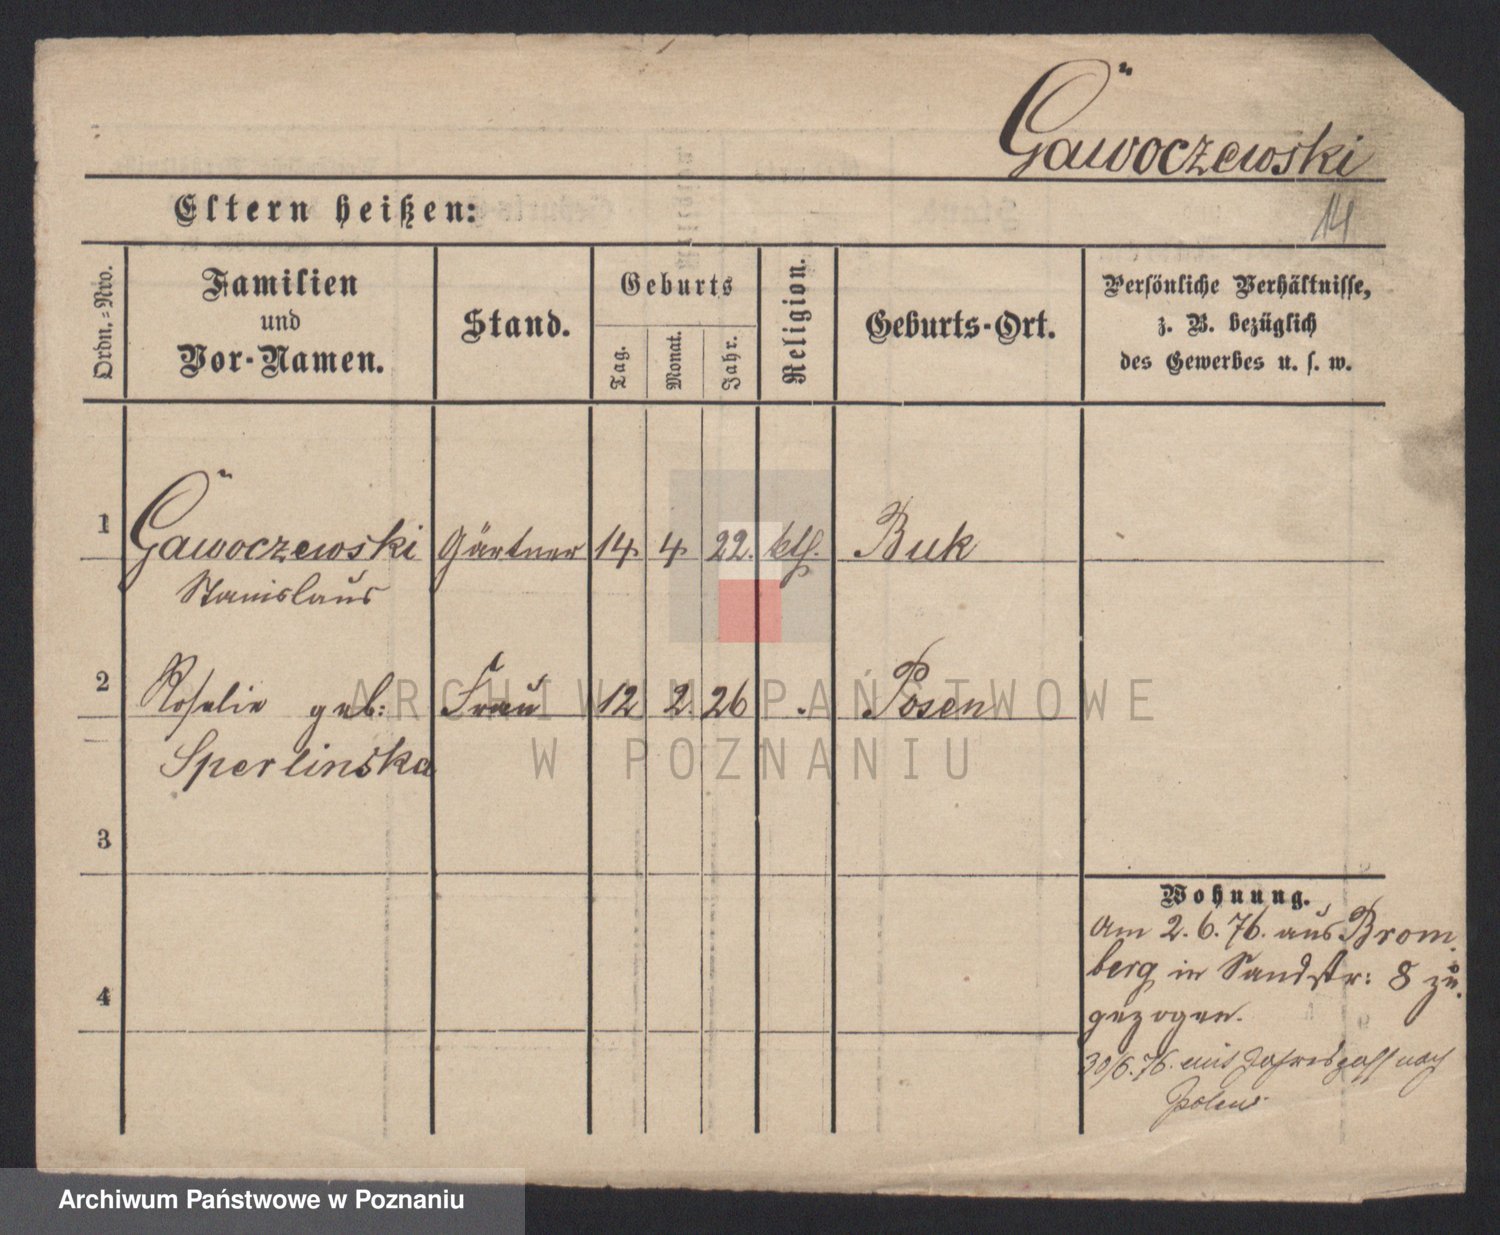 Gawoczewski
14
Eltern heißen:
Ordn.=Nro.
Familien
und
Vor-Namen.
Stand.
Geburts
Tag.
Monat.
Jahr.
Religion.
Geburts-Ort.
Persönliche Verhältnisse,
z. B. bezüglich
des Gewerbes u. s. w.
1 Gawoczewski Gärtner 14. 4. 22. kth. Buk
Stanislaus
2 Rosalie geb: Frau 12 2. 26 . Posen
Sperlinska
3
4
Wohnung.
Am 2. 6. 76. aus Brom-
berg in Sandstr: 8 zu-
gezogen.
30/6. 76. mit Jahrespaß nach
Polen
ARCHIWUM PAŃSTWOWE
W POZNANIU
Archiwum Państwowe w Poznaniu